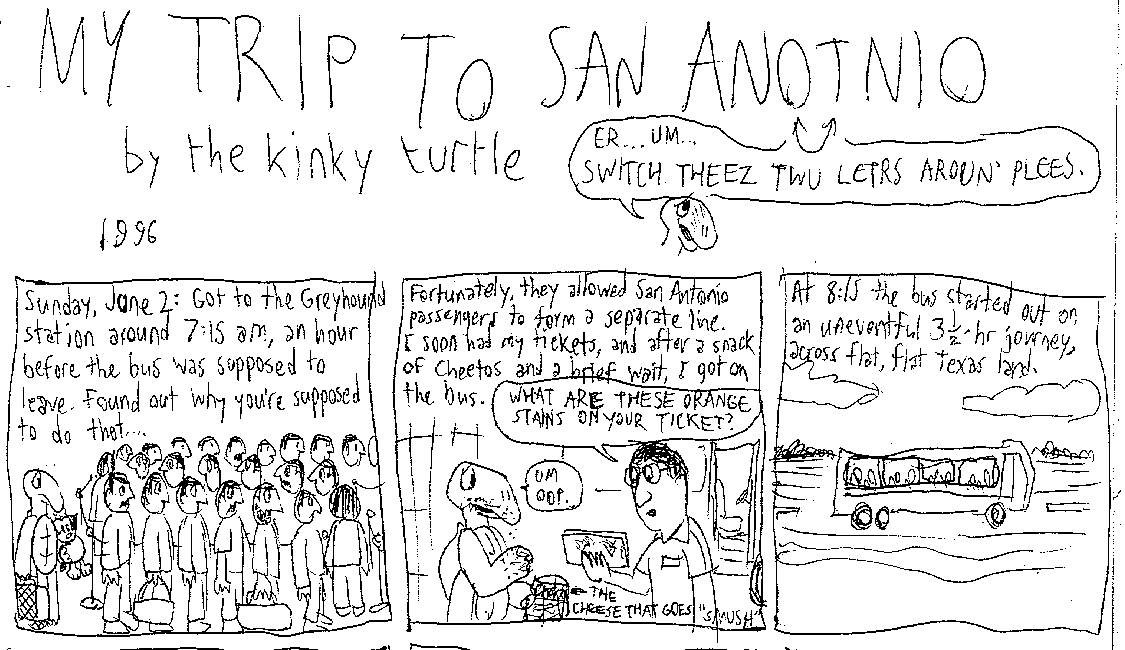 MY TRIP TO SAN ANOTNIO
by the kinky turtle
ER...UM...
SWITCH THEEZ TWU LETRS AROUN' PLEES.
1996
Sunday, June 2: Got to the Greyhound
station around 7:15 am, an hour
before the bus was supposed to
leave. Found out why you're supposed
to do that...
Fortunately, they allowed San Antonio
passengers to form a separate line.
I soon had my tickets, and after a snack
of Cheetos and a brief wait, I got on
the bus.
WHAT ARE THESE ORANGE
STAINS ON YOUR TICKET?
UM
OOP.
THE
CHEESE THAT GOES "SMUSH"
At 8:15 the bus started out on
an uneventful 3½-hr journey,
across flat, flat Texas land.